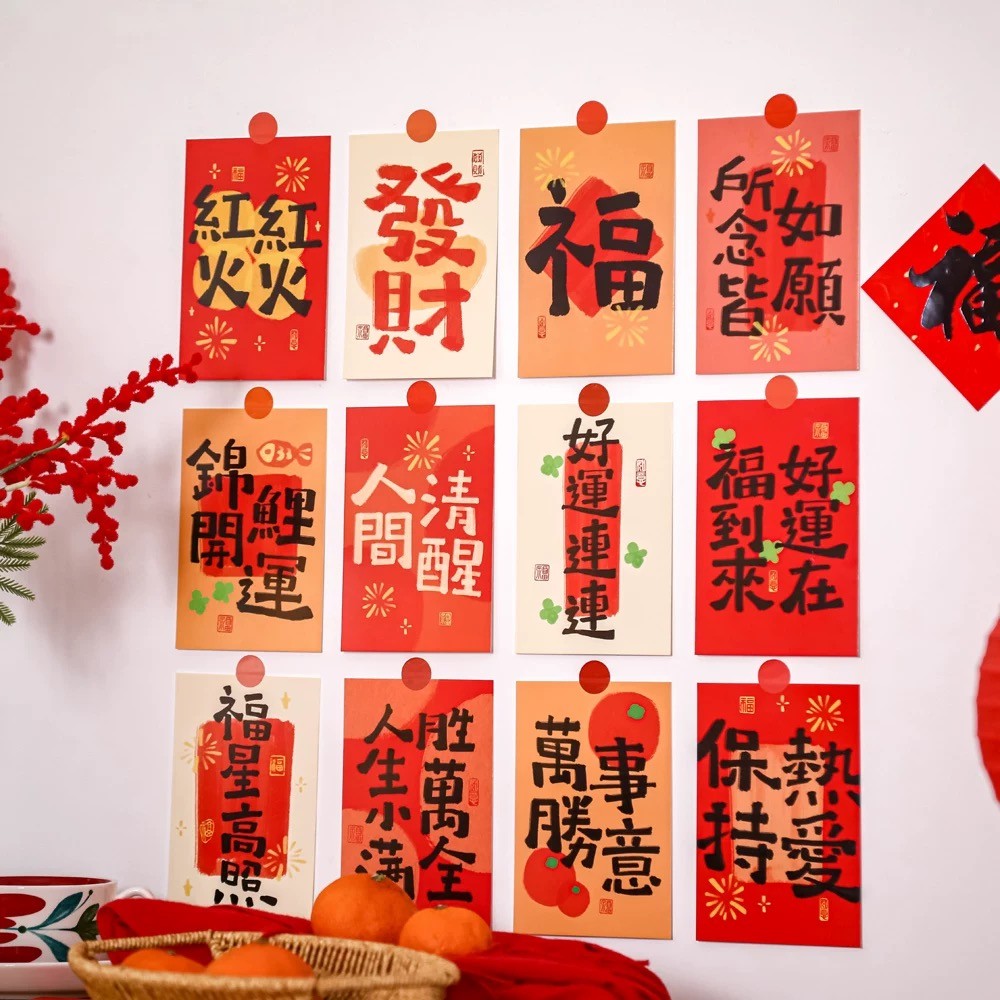 紅紅
火火
發
財
福
所念皆
如願
錦鯉
開運
人間
清醒
好運連連
福到來
好運在
福星高照
人生小滿
胜萬全
萬事
勝意
保持
熱愛
福